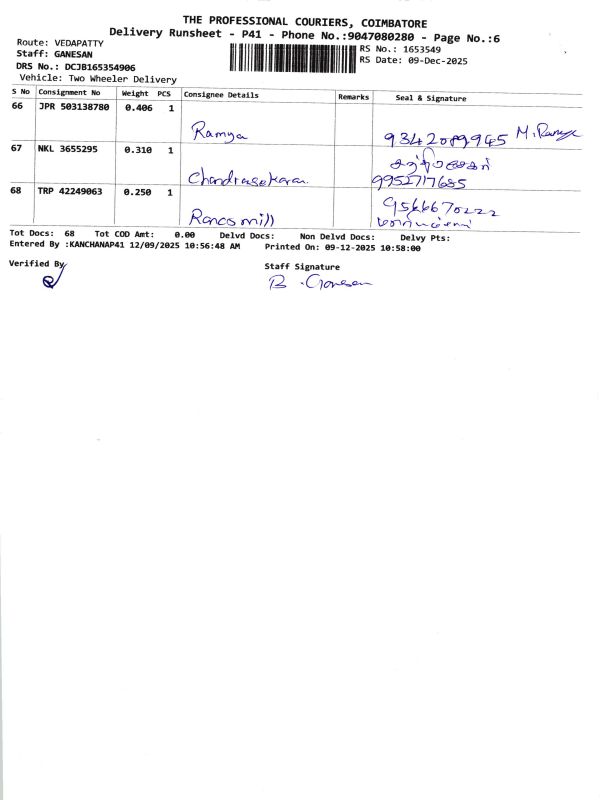 THE PROFESSIONAL COURIERS, COIMBATORE
Delivery Runsheet - P41 - Phone No.:9047080280 - Page No.:6
Route: VEDAPATTY
Staff: GANESAN
DRS No.: DCJB165354906
Vehicle: Two Wheeler Delivery
RS No.: 1653549
RS Date: 09-Dec-2025
S No Consignment No Weight PCS Consignee Details Remarks Seal & Signature
66 JPR 503138780 0.406 1
Ramya 9342089945 M. Ramya
67 NKL 3655295 0.310 1
Chandrasekaran 9952717685
68 TRP 42249063 0.250 1
Rancomill 9566670222
Tot Docs: 68 Tot COD Amt: 0.00 Delvd Docs: Non Delvd Docs: Delvy Pts:
Entered By :KANCHANAP41 12/09/2025 10:56:48 AM Printed On: 09-12-2025 10:58:00
Verified By
Staff Signature
B. Ganesan